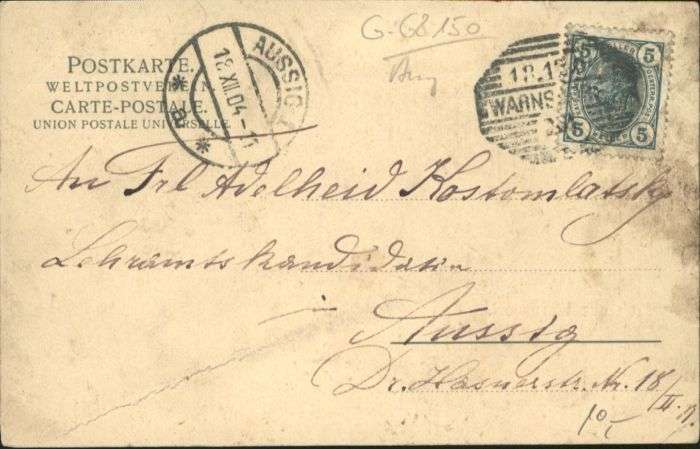 POSTKARTE.
WELTPOSTVEREIN.
CARTE-POSTALE.
UNION POSTALE UNIVERSELLE.
AUSSIG
18.XII.04-11
* a *
G-68150
18.12
WARNS
5 HELLER 5
5 5
An Frl Adelheid Kostomlatsky
Lehramtskandidatin
in
Aussig
Dr. Hasnerstr. Nr. 18/II.
10,-